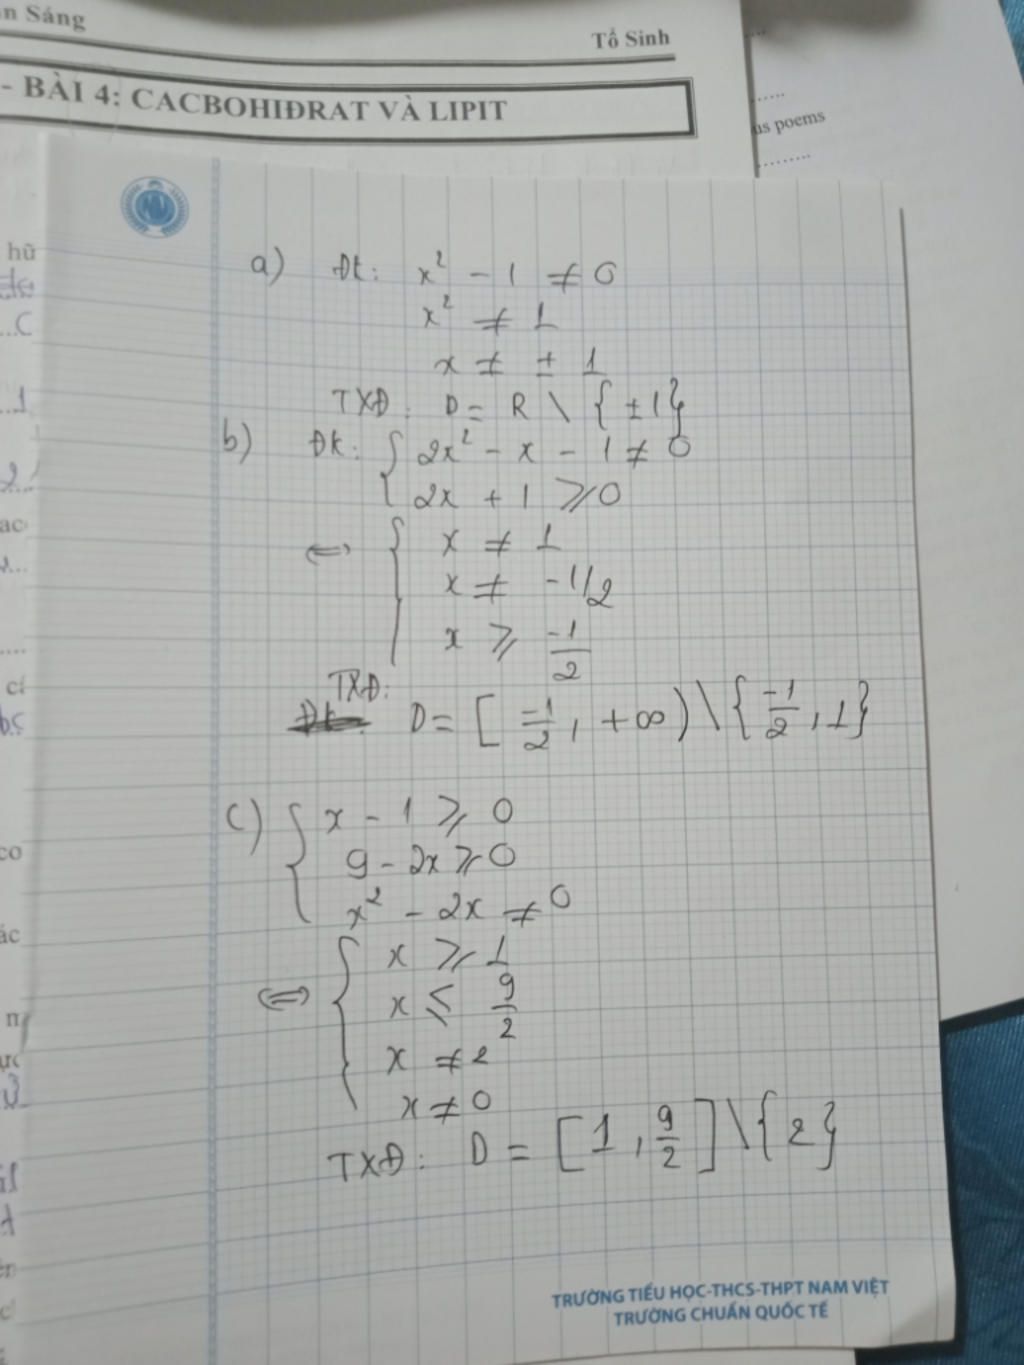 n Sáng
Tổ Sinh
- BÀI 4: CACBOHIĐRAT VÀ LIPIT
us poems
hữ
a) Đk: x² - 1 ≠ 0
x² ≠ 1
x ≠ ± 1
TXĐ: D = R \ {±1}
b) Đk: { 2x² - x - 1 ≠ 0
2x + 1 ≥ 0
⇔ { x ≠ 1
x ≠ -1/2
x ≥ -1/2
TXĐ:
D = [ -1/2, +∞) \ { -1/2, 1}
c) { x - 1 ≥ 0
9 - 2x ≥ 0
x² - 2x ≠ 0
⇔ { x ≥ 1
x ≤ 9/2
x ≠ 2
x ≠ 0
TXĐ: D = [1, 9/2] \ {2}
TRƯỜNG TIỂU HỌC-THCS-THPT NAM VIỆT
TRƯỜNG CHUẨN QUỐC TẾ